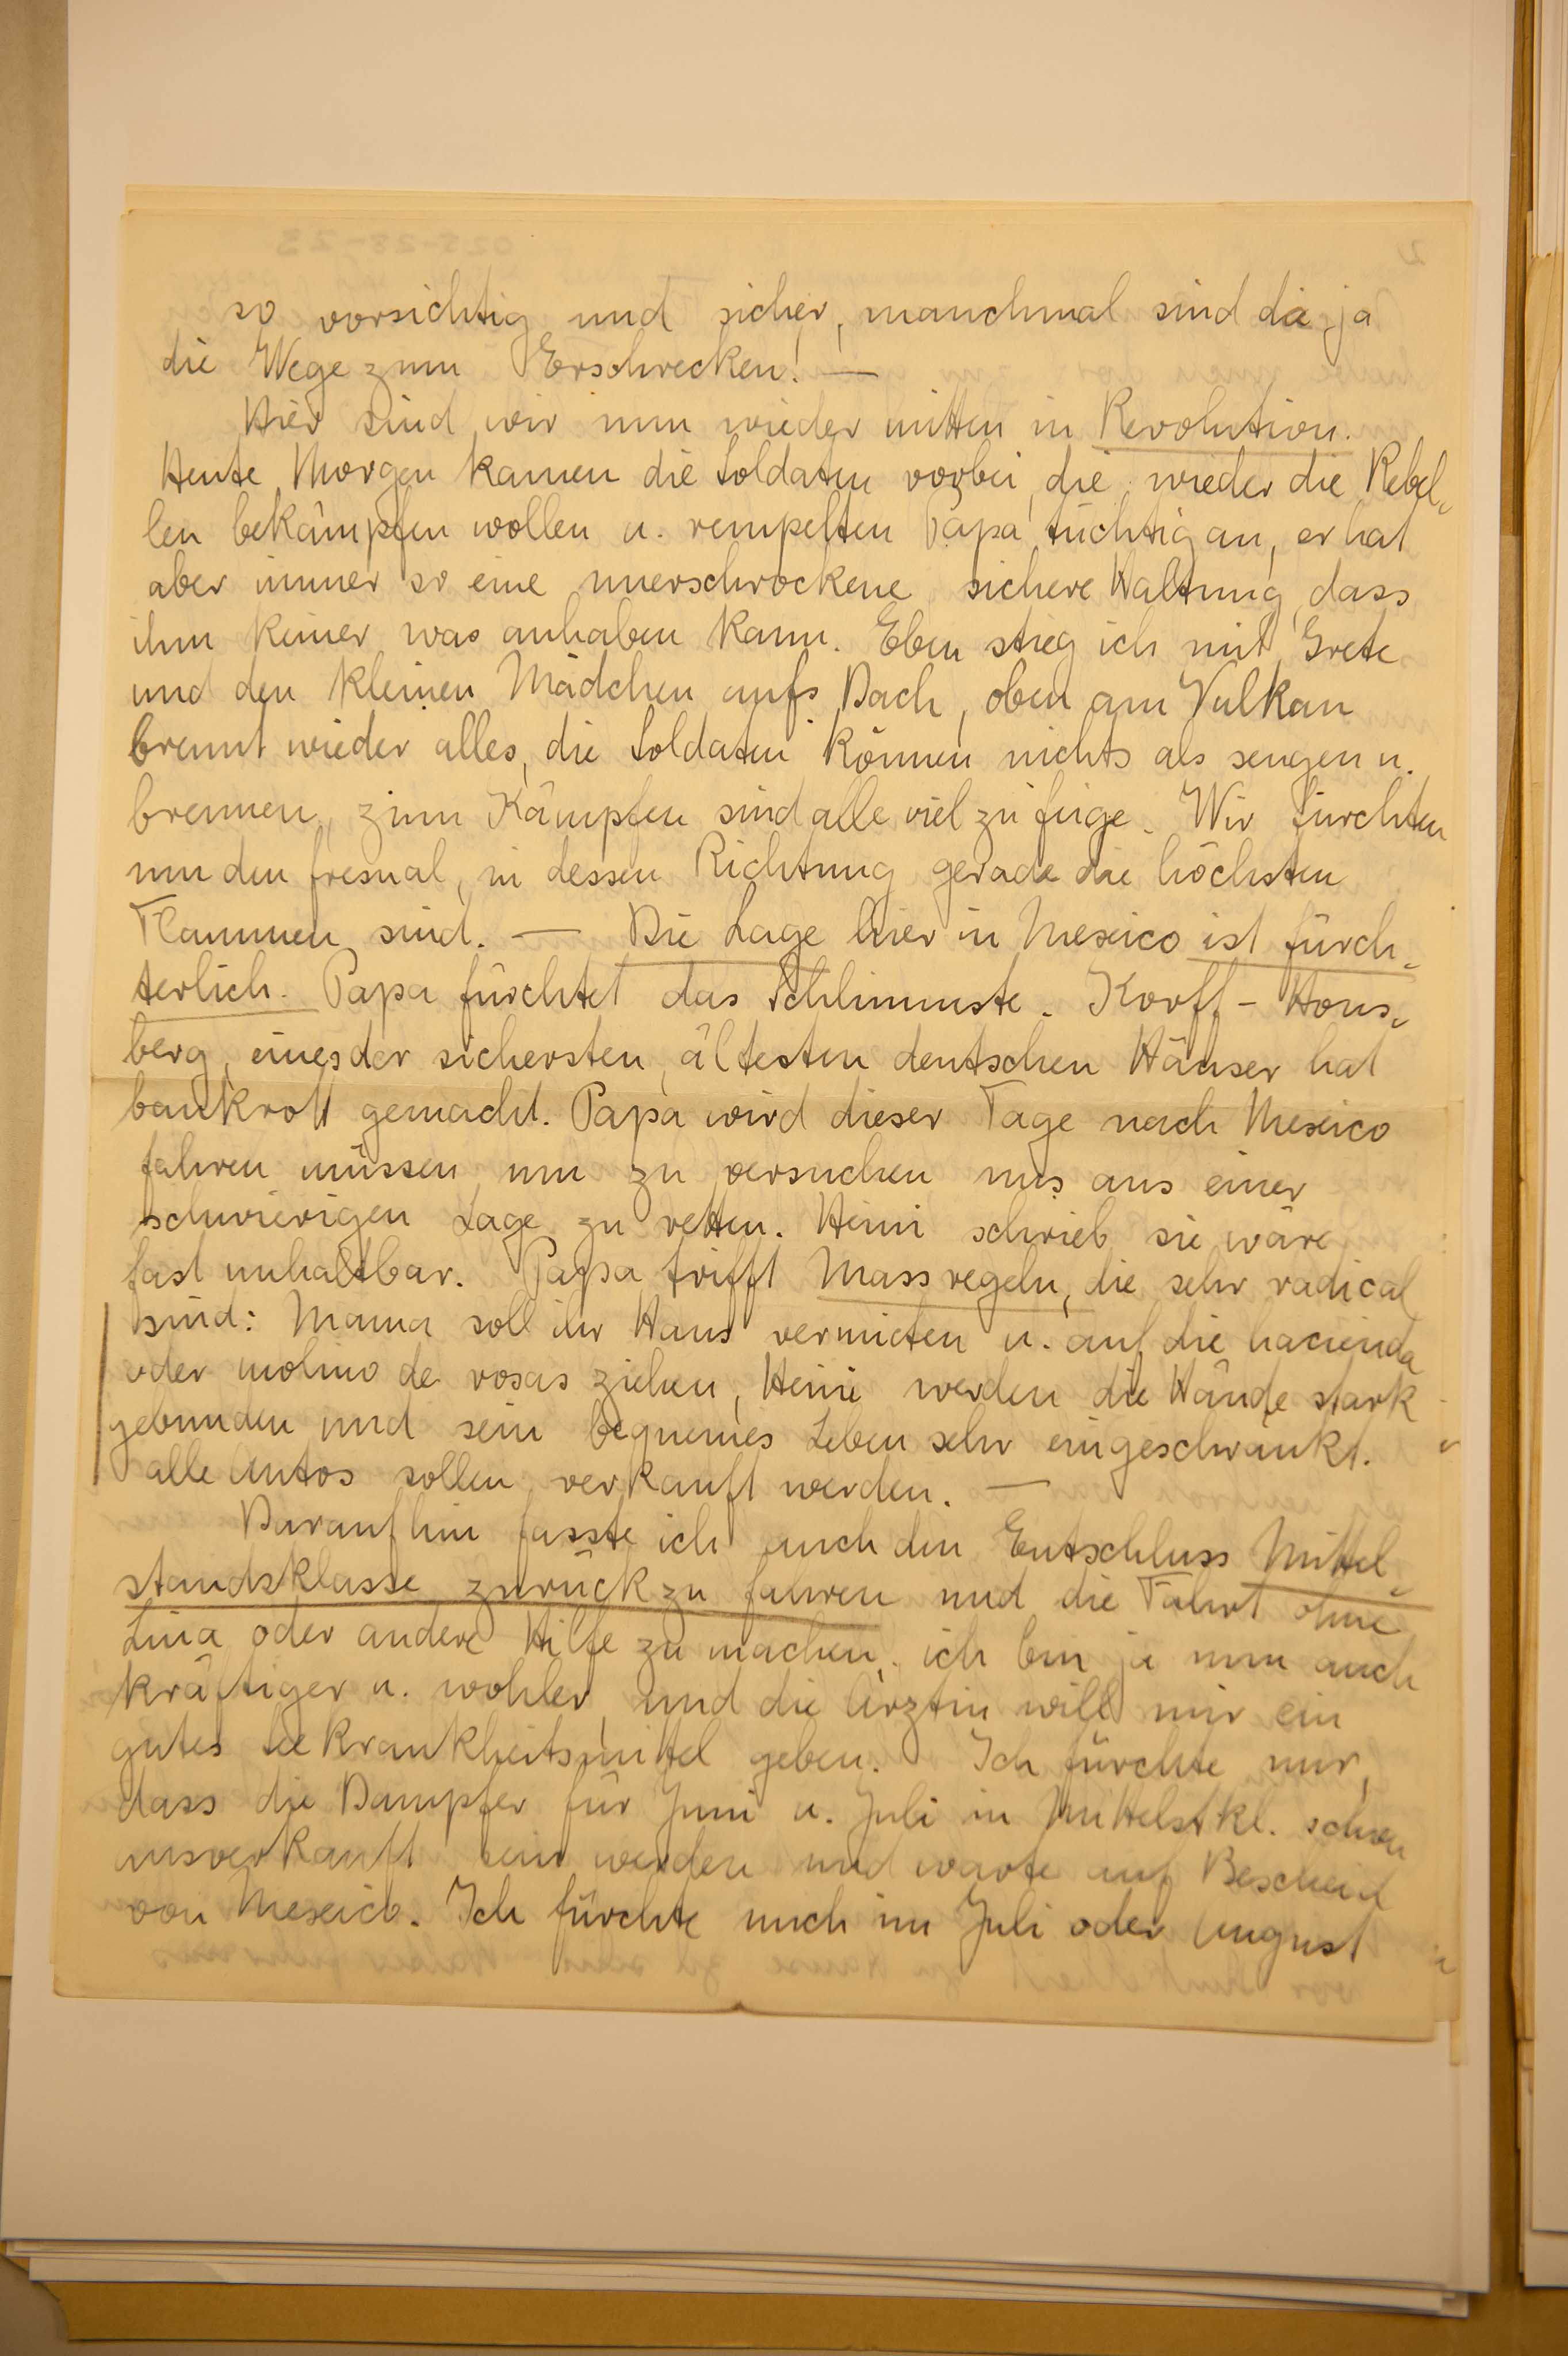 so vorsichtig und sicher, manchmal sind da ja
die Wege zum Erschrecken! —
Hier sind wir nun wieder mitten in Revolution.
Heute Morgen kamen die Soldaten vorbei, die wieder die Rebel-
len bekämpfen wollen u. rempelten Papa tüchtig an, er hat
aber immer so eine unerschrockene sichere Haltung, dass
ihm keiner was anhaben kann. Eben stieg ich mit Grete
und den kleinen Mädchen aufs Dach, oben am Vulkan
brennt wieder alles, die Soldaten können nichts als sengen u.
brennen, zum Kämpfen sind alle viel zu feige. Wir fürchten
um den fresnal, in dessen Richtung gerade die höchsten
Flammen sind. — Die Lage hier in Mexico ist fürch-
terlich. Papa fürchtet das Schlimmste. Korff - Hons-
berg, eines der sichersten, ältesten deutschen Häuser hat
bankrott gemacht. Papa wird dieser Tage nach Mexico
fahren müssen um zu versuchen uns aus einer
schwierigen Lage zu retten. Heini schrieb sie wäre
fast unhaltbar. Papa trifft Massregeln, die sehr radical
sind: Mama soll ihr Haus vermieten u. auf die hacienda
oder molino de rosas ziehen, Heini werden die Hände stark
gebunden und sein bequemes Leben sehr eingeschränkt.
alle Autos sollen verkauft werden. —
Daraufhin fasste ich auch den Entschluss Mittel-
standsklasse zurück zu fahren und die Fahrt ohne
Lina oder andere Hilfe zu machen, ich bin ja nun auch
kräftiger u. wohler, und die Ärztin will mir ein
gutes Seekrankheitsmittel geben. Ich fürchte nur,
dass die Dampfer für Juni u. Juli in Mittelstkl. schon
ausverkauft sein werden und warte auf Bescheid
von Mexico. Ich fürchte mich im Juli oder August